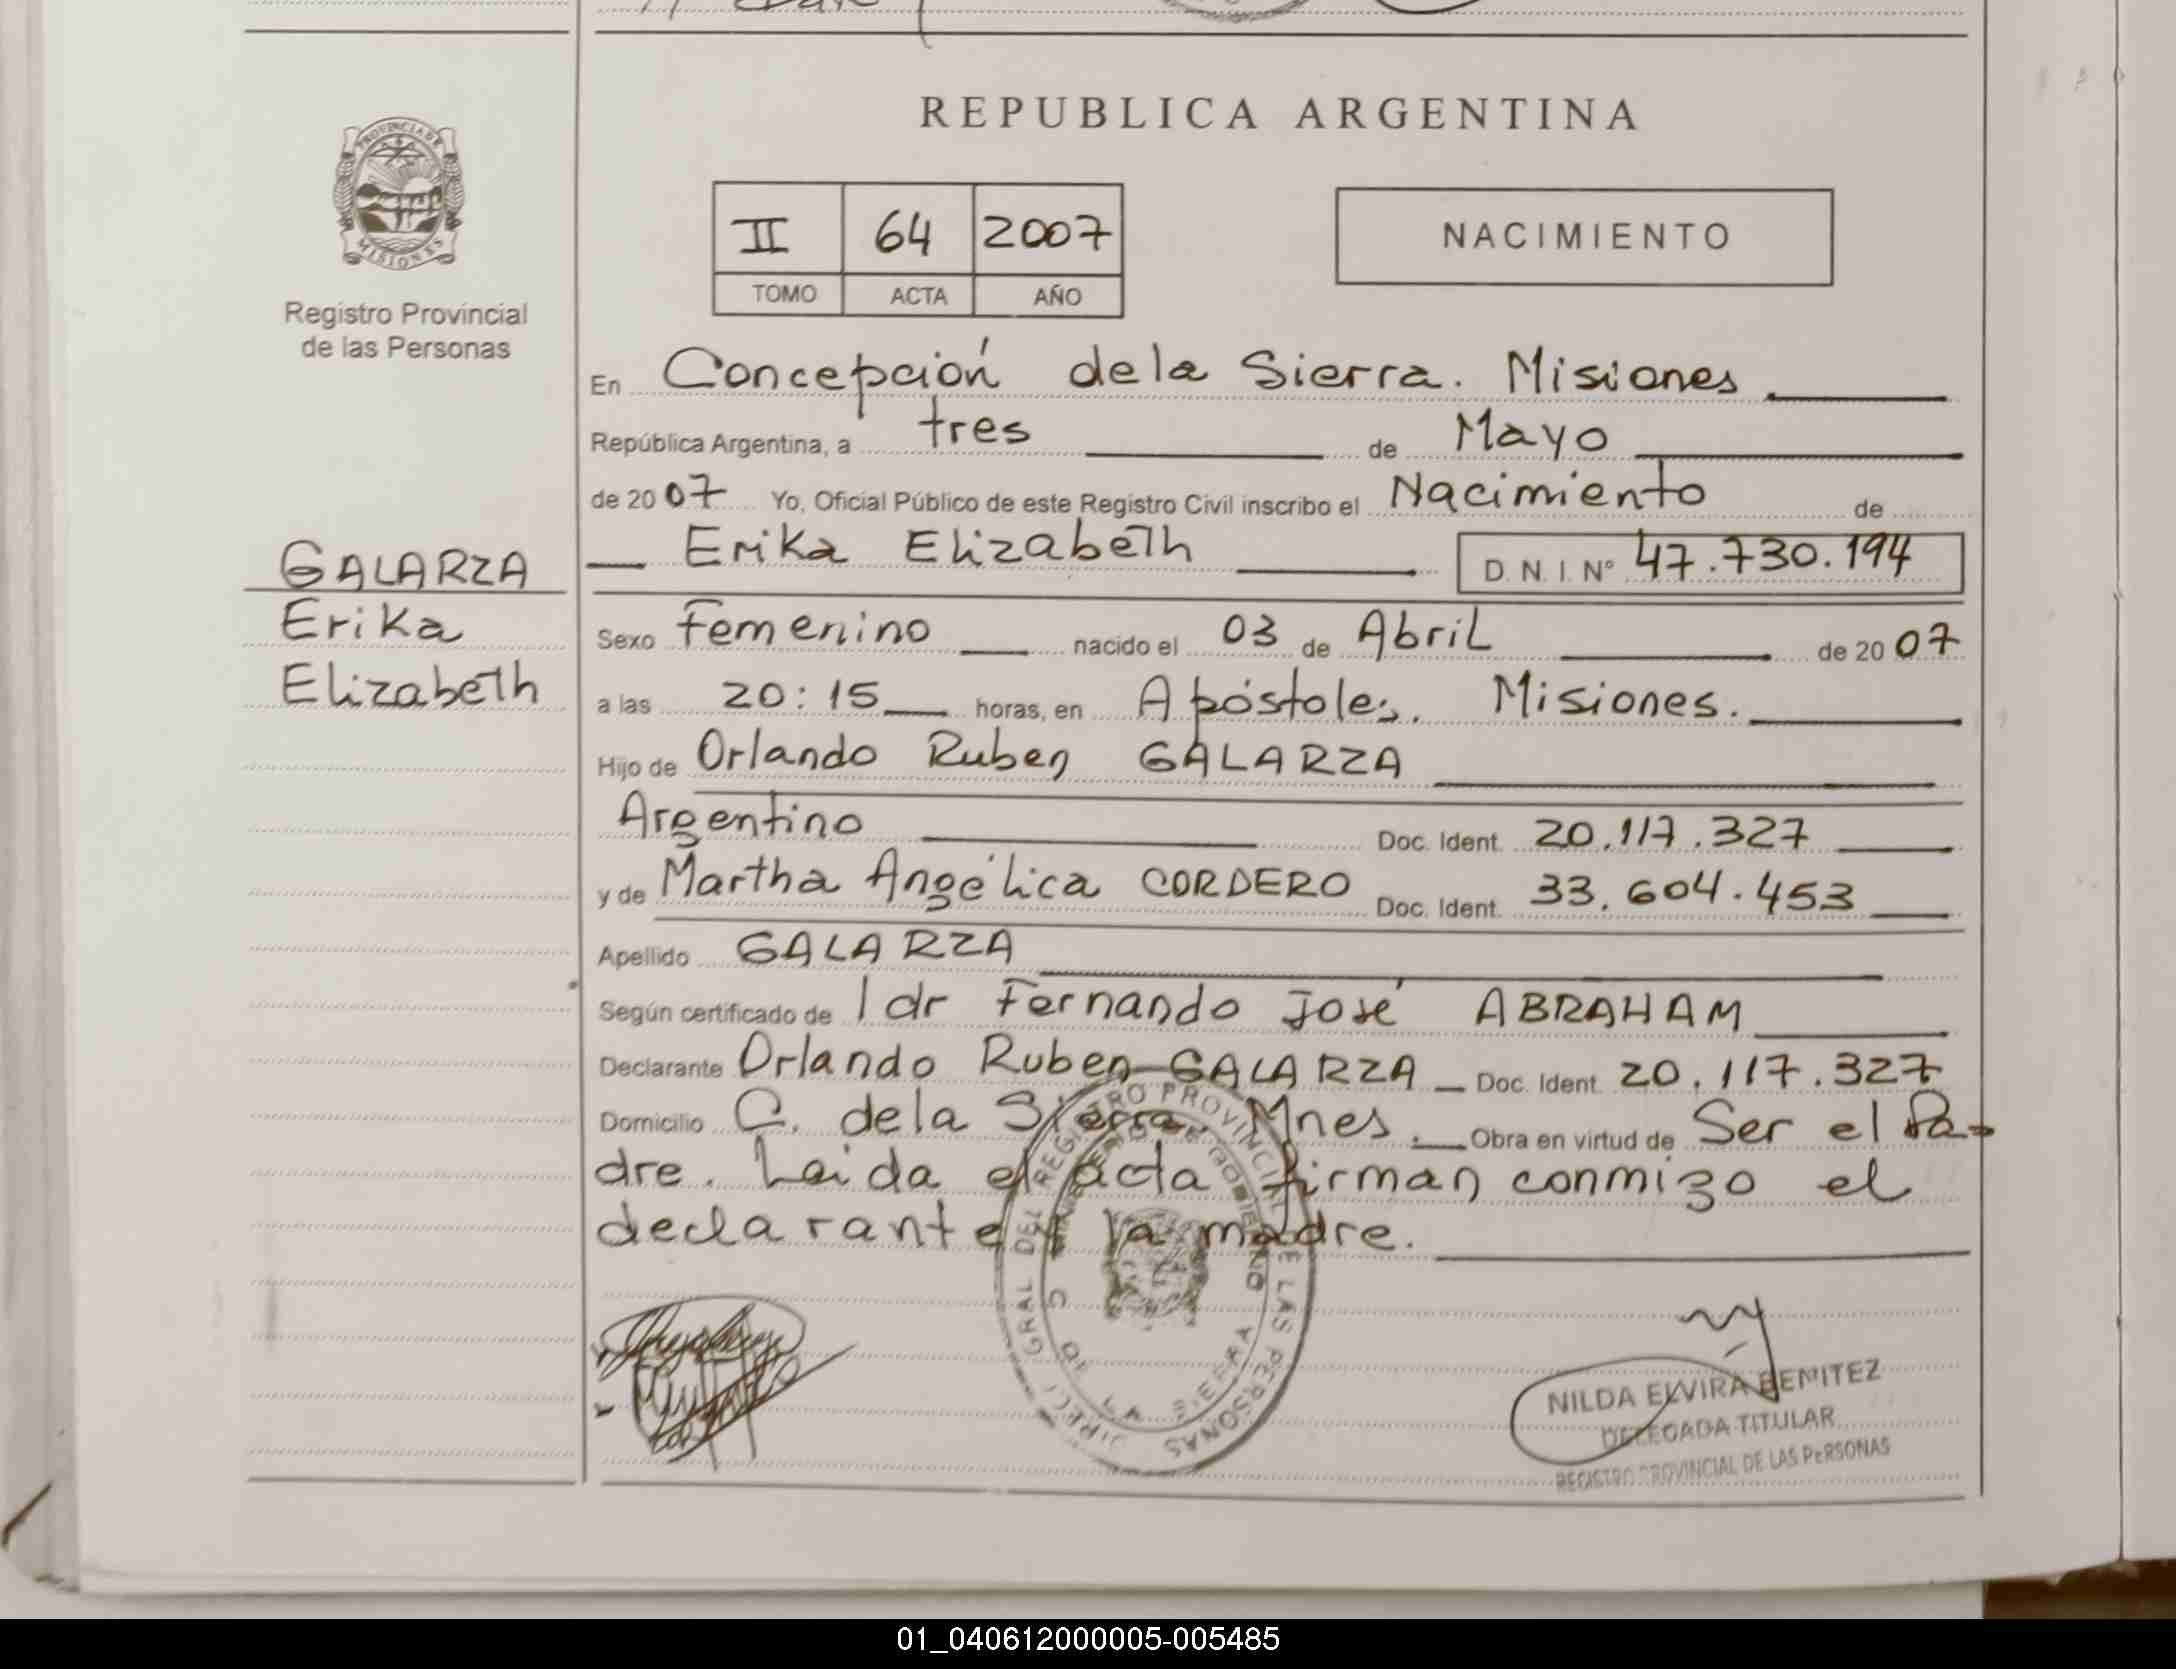 PROVINCIA DE
MISIONES
Registro Provincial
de las Personas
GALARZA
Erika
Elizabeth
REPUBLICA ARGENTINA
II 64 2007
TOMO ACTA AÑO
NACIMIENTO
En Concepción de la Sierra. Misiones
República Argentina, a tres de Mayo
de 2007 Yo, Oficial Público de este Registro Civil inscribo el Nacimiento de
Erika Elizabeth D. N. I. N° 47.730.194
Sexo Femenino nacido el 03 de Abril de 2007
a las 20:15 horas, en Apóstoles. Misiones.
Hijo de Orlando Ruben GALARZA
Argentino Doc. Ident. 20.117.327
y de Martha Angélica CORDERO Doc. Ident. 33.604.453
Apellido GALARZA
Según certificado de l dr Fernando José ABRAHAM
Declarante Orlando Ruben GALARZA Doc. Ident. 20.117.327
Domicilio C. de la Sierra. Mnes. Obra en virtud de Ser el Pa-
dre. Leida el acta firman conmigo el
declarante y la madre.
DIRECC. GRAL DEL REGISTRO PROVINCIAL DE LAS PERSONAS
C DE LA SIERRA
NILDA ELVIRA BENITEZ
DELEGADA TITULAR
REGISTRO PROVINCIAL DE LAS PERSONAS
01_040612000005-005485